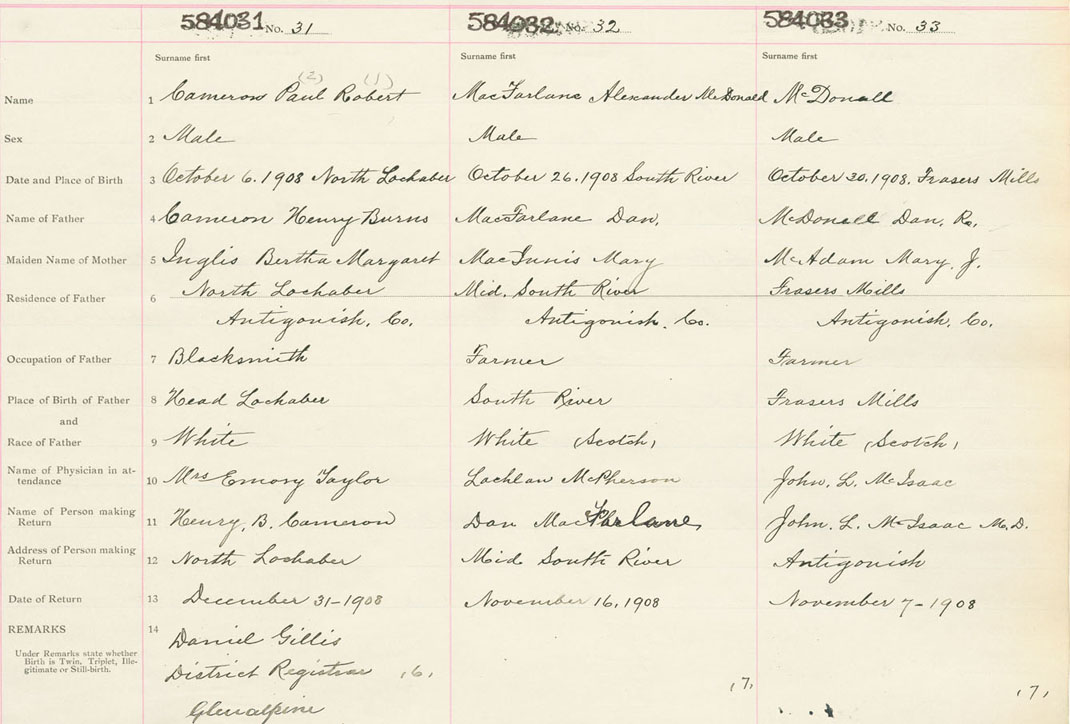 584031 No. 31 584032 No. 32 584033 No. 33
Surname first Surname first Surname first
(2) (1)
Name 1 Cameron Paul Robert MacFarlane Alexander McDonald McDonall
Sex 2 Male Male Male
Date and Place of Birth 3 October 6. 1908 North Lochaber October 26. 1908 South River October 30. 1908. Frasers Mills
Name of Father 4 Cameron Henry Burns MacFarlane Dan. McDonall Dan. R.
Maiden Name of Mother 5 Inglis Bertha Margaret MacInnis Mary McAdam Mary. J.
Residence of Father 6 North Lochaber Mid. South River Frasers Mills
Antigonish. Co. Antigonish. Co. Antigonish. Co.
Occupation of Father 7 Blacksmith Farmer Farmer
Place of Birth of Father 8 Head Lochaber South River Frasers Mills
and
Race of Father 9 White White (Scotch) White (Scotch)
Name of Physician in at-
tendance 10 Mrs Emory Taylor Lachlan McPherson John. L. McIsaac
Name of Person making
Return 11 Henry. B. Cameron Dan MacFarlane John. L. McIsaac M.D.
Address of Person making
Return 12 North Lochaber Mid South River Antigonish
Date of Return 13 December 31-1908 November 16, 1908 November 7-1908
REMARKS 14 Daniel Gillis
Under Remarks state whether
Birth is Twin, Triplet, Ille-
gitimate or Still-birth.
District Registrar (6) (7) (7)
Glenalpine